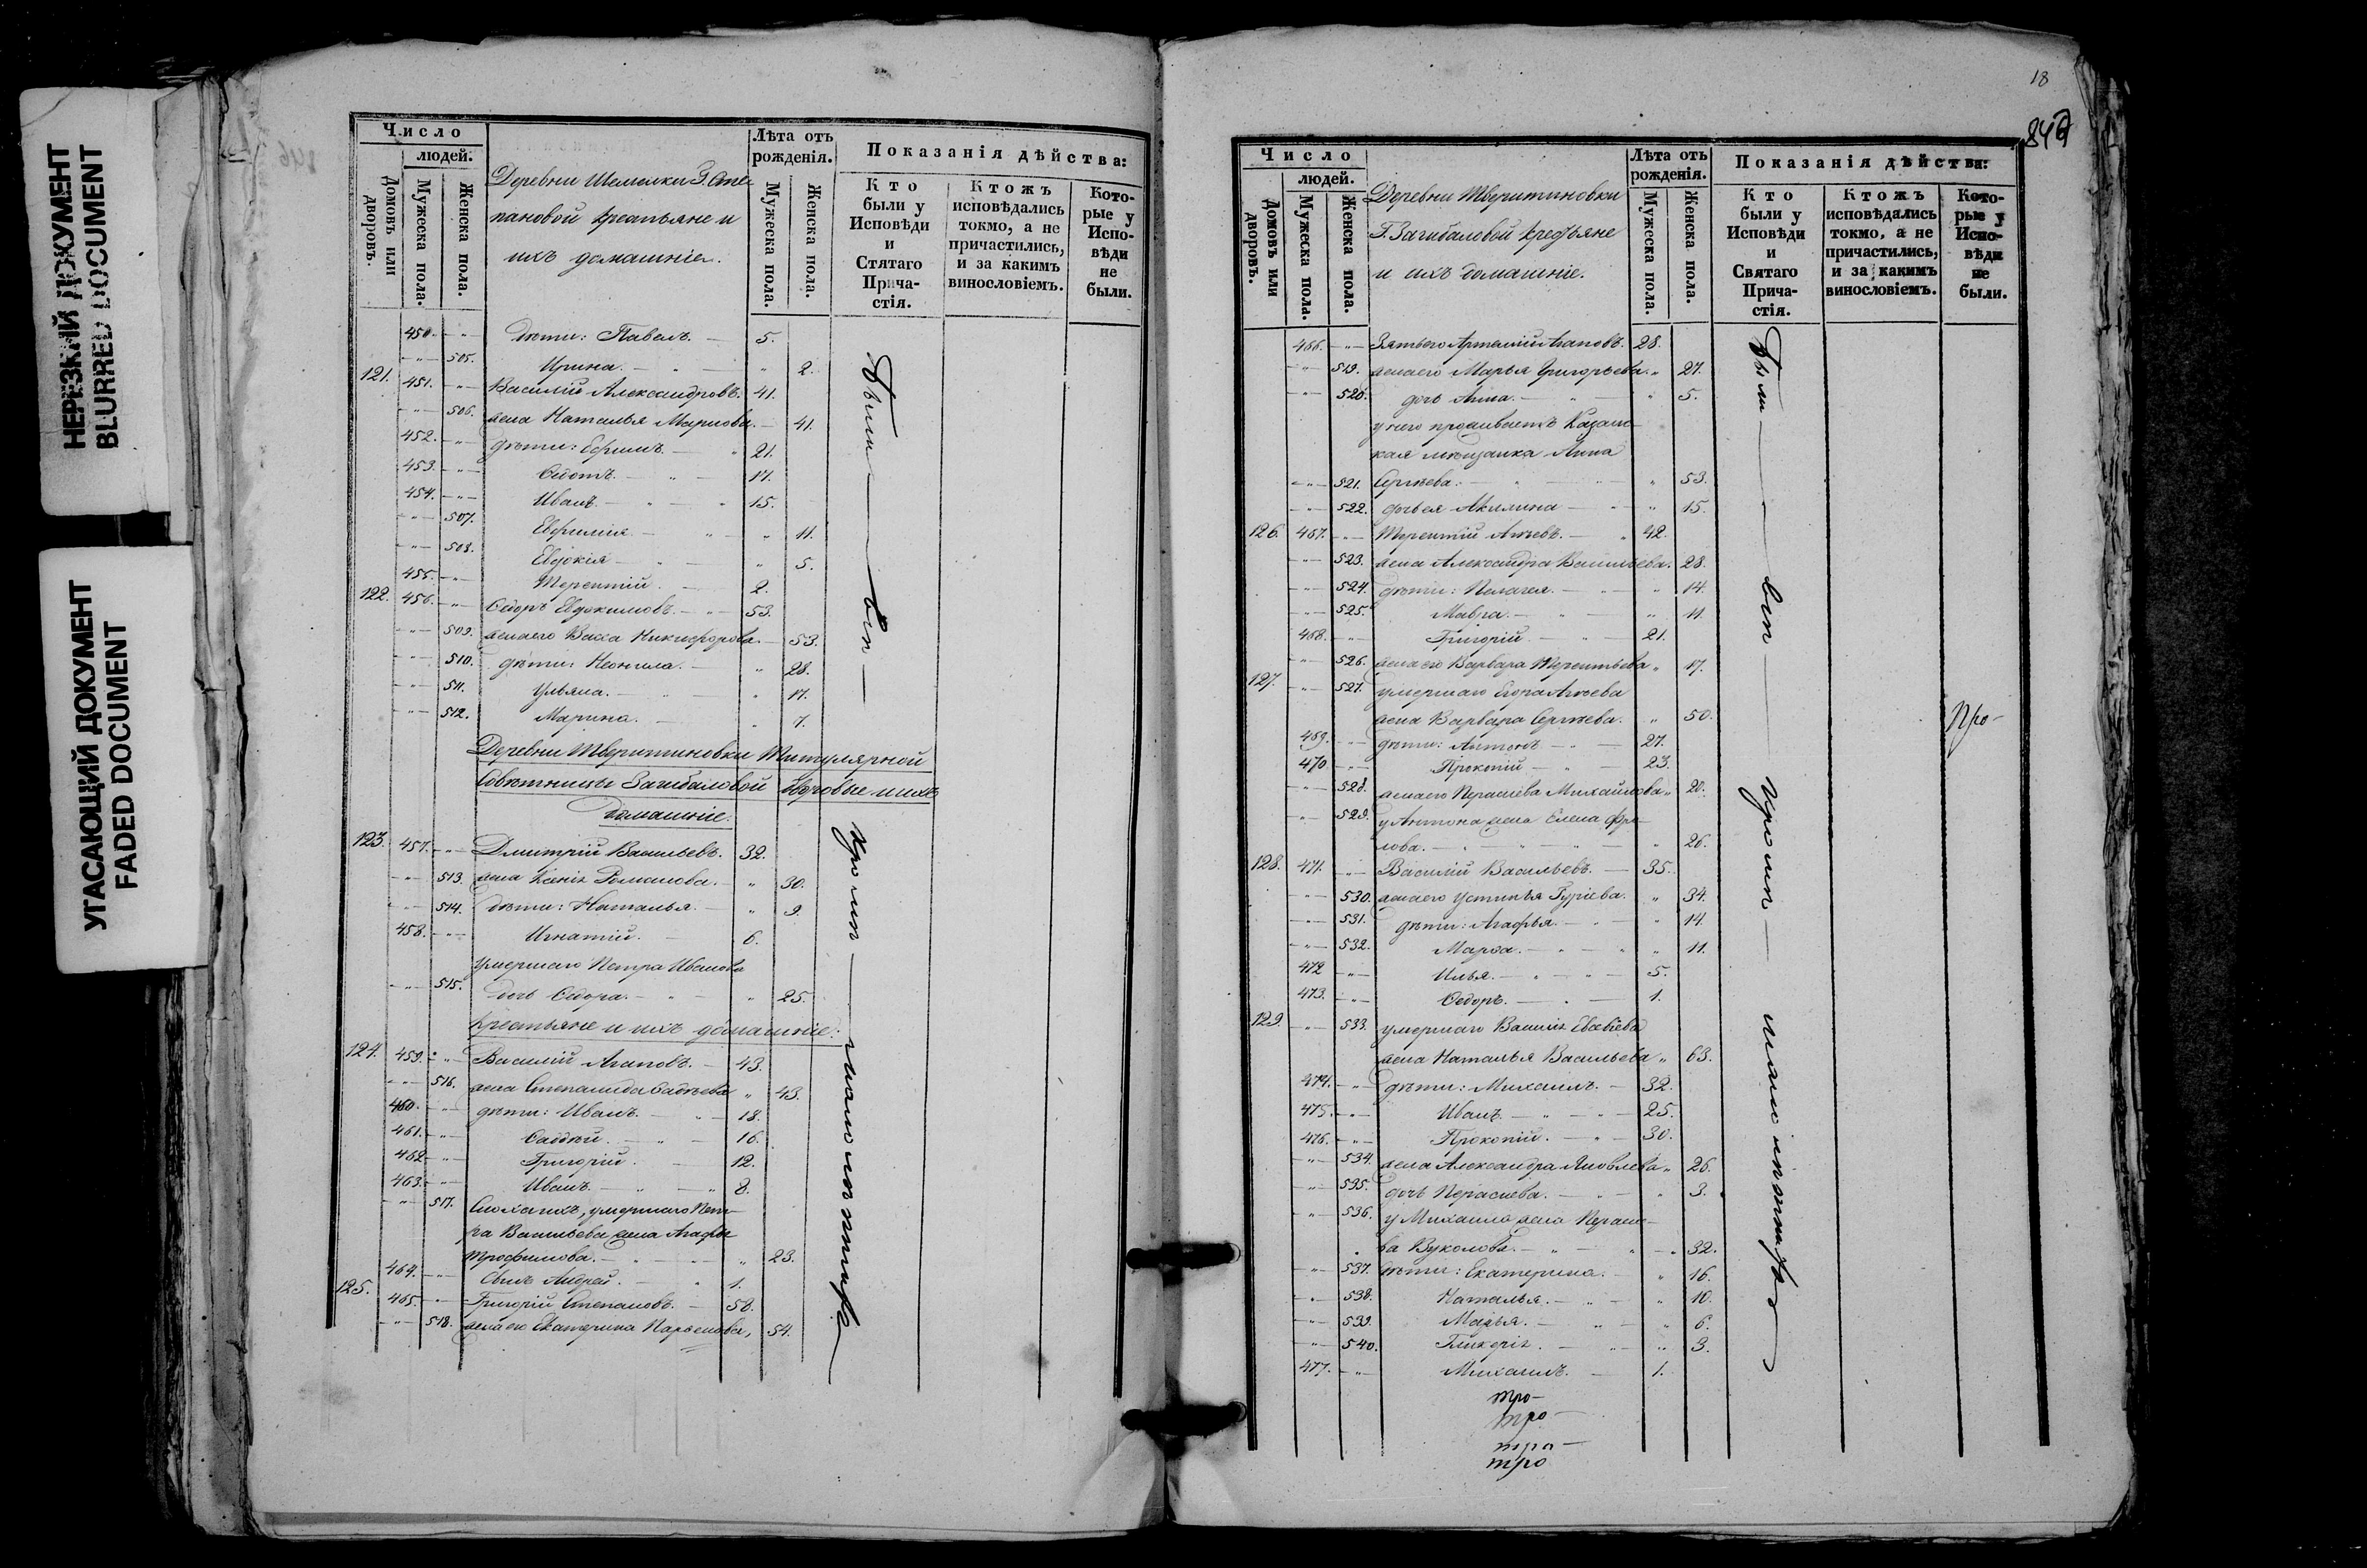 НЕРЕЗКИЙ ДОКУМЕНТ
BLURRED DOCUMENT
УГАСАЮЩИЙ ДОКУМЕНТ
FADED DOCUMENT
Число
людей.
Домовъ или дворовъ.
Мужеска пола.
Женска пола.
Деревни Шемелки Г. Сте-
пановой крестьяне и
ихъ домашніе.
Лѣта отъ рожденія.
Мужеска пола.
Женска пола.
Показанія дѣйства:
Кто были у Исповѣди и Стятаго Прича-стія.
Ктожъ исповѣдались токмо, а не причастились, и за какимъ винословіемъ.
Кото-рые у Испо-вѣди не были.
450. дѣти: Павелъ. 5.
505. Ирина. 2.
121. 451. Василій Александровъ. 41.
506. жена Наталья Маркова. 41.
452. дѣти: Ефимъ. 21.
453. Ѳедотъ. 17.
454. Иванъ. 15.
507. Евфимія. 11.
508. Евдокія 5.
455. Терентій. 2.
122. 456. Ѳедоръ Евдокимовъ. 53.
509. жена его Васса Никифорова. 53.
510. дѣти: Неонила. 28.
511. Ульяна. 17.
512. Марина. 7.
Деревни Тверитиновки Титулярной
Совѣтницы Загибаловой дворовые и ихъ
домашніе.
123. 457. Дмитрій Васильевъ. 32.
513. жена Ксенія Романова. 30.
514. дѣти: Наталья. 9.
458. Игнатій. 6.
умершаго Петра Иванова
515. дочь Ѳедора. 25.
Крестьяне и ихъ домашніе:
124. 459. Василій Агаповъ. 43.
516. жена Степанида Ѳадѣева 43.
460. дѣти: Иванъ. 18.
461. Ѳаддѣй. 16.
462 Григорій. 12.
463. Иванъ. 8.
517. Сноха ихъ, умершаго Пет-
ра Васильева жена Агафья
Трофимова. 23.
464. Сынъ Андрей. 1.
125. 465. Григорій Степановъ. 58.
518. жена его Екатерина Парѳенова, 54.
были
18
846
Число
людей.
Домовъ или дворовъ.
Мужеска пола.
Женска пола.
Деревни Тверитиновки
Г. Загибаловой крестьяне
и ихъ домашніе.
Лѣта отъ рожденія.
Мужеска пола.
Женска пола.
Показанія дѣйства:
Кто были у Исповѣди и Святаго Прича-стія.
Ктожъ исповѣдались токмо, а не причастились, и за какимъ винословіемъ.
Кото-рые у Испо-вѣди не были.
466. Зять его Артемій Агаповъ. 28.
519. жена его Марья Григорьева. 27.
520. дочь Анна. 5.
у него проживаетъ Казан-
ская мѣщанка Анна
521. Сергѣева. 53.
522. дочь ея Акилина 15.
126. 467. Терентій Агѣевъ. 42.
523. жена Александра Васильева. 28.
524. дѣти: Пелагея. 14.
525. Мавра. 11.
468. Григорій. 21.
526. жена его Варвара Терентьева 17.
127. 527. умершаго Егора Агѣева
жена Варвара Сергѣева. 50.
469. дѣти: Антонъ 27.
470. Прокопій 23.
528. жена его Параскева Михайлова 20.
529. у Антона жена Елена Фро-
лова. 26.
128. 471. Василій Васильевъ. 35.
530. жена его Устинья Гуріева. 34.
531. дѣти: Агафья. 14.
532. Марѳа. 11.
472 Илья. 5.
473. Ѳедоръ. 1.
129. 533. умершаго Василія Евсевіева
жена Наталья Васильева 63.
474. дѣти: Михаилъ. 32.
475. Иванъ. 25.
476. Прокопій. 30.
534. жена Александра Яковлева 26.
535. дочь Параскева. 3.
536. у Михаила жена Параске-
ва Вуколова. 32.
537. дѣти: Екатерина. 16.
538. Наталья. 10.
539. Марья. 6.
540. Гликерія. 3.
477. Михаилъ. 1.
были